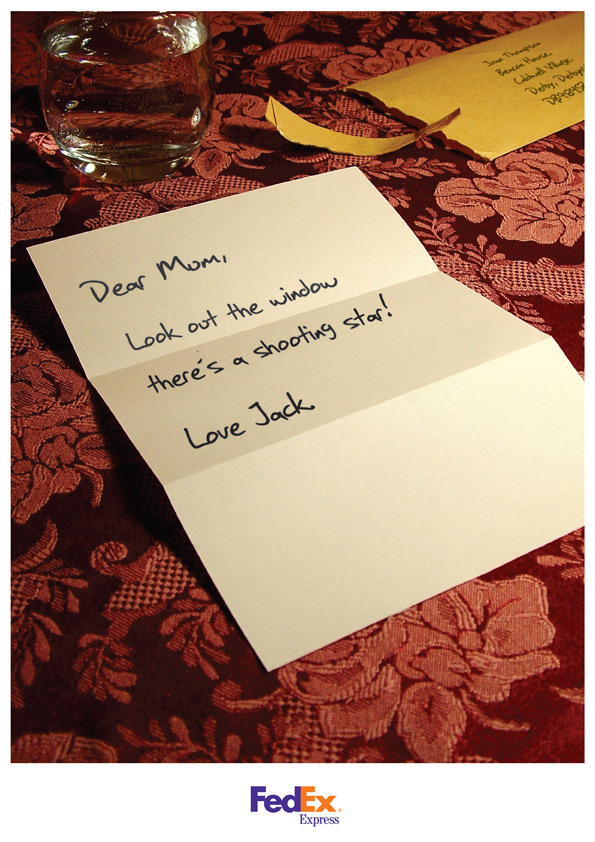 Joan Thompson
Beacon House,
Caldwell Village
Derby,
Dear Mum,
Look out the window
there's a shooting star!
Love Jack.
FedEx®
Express